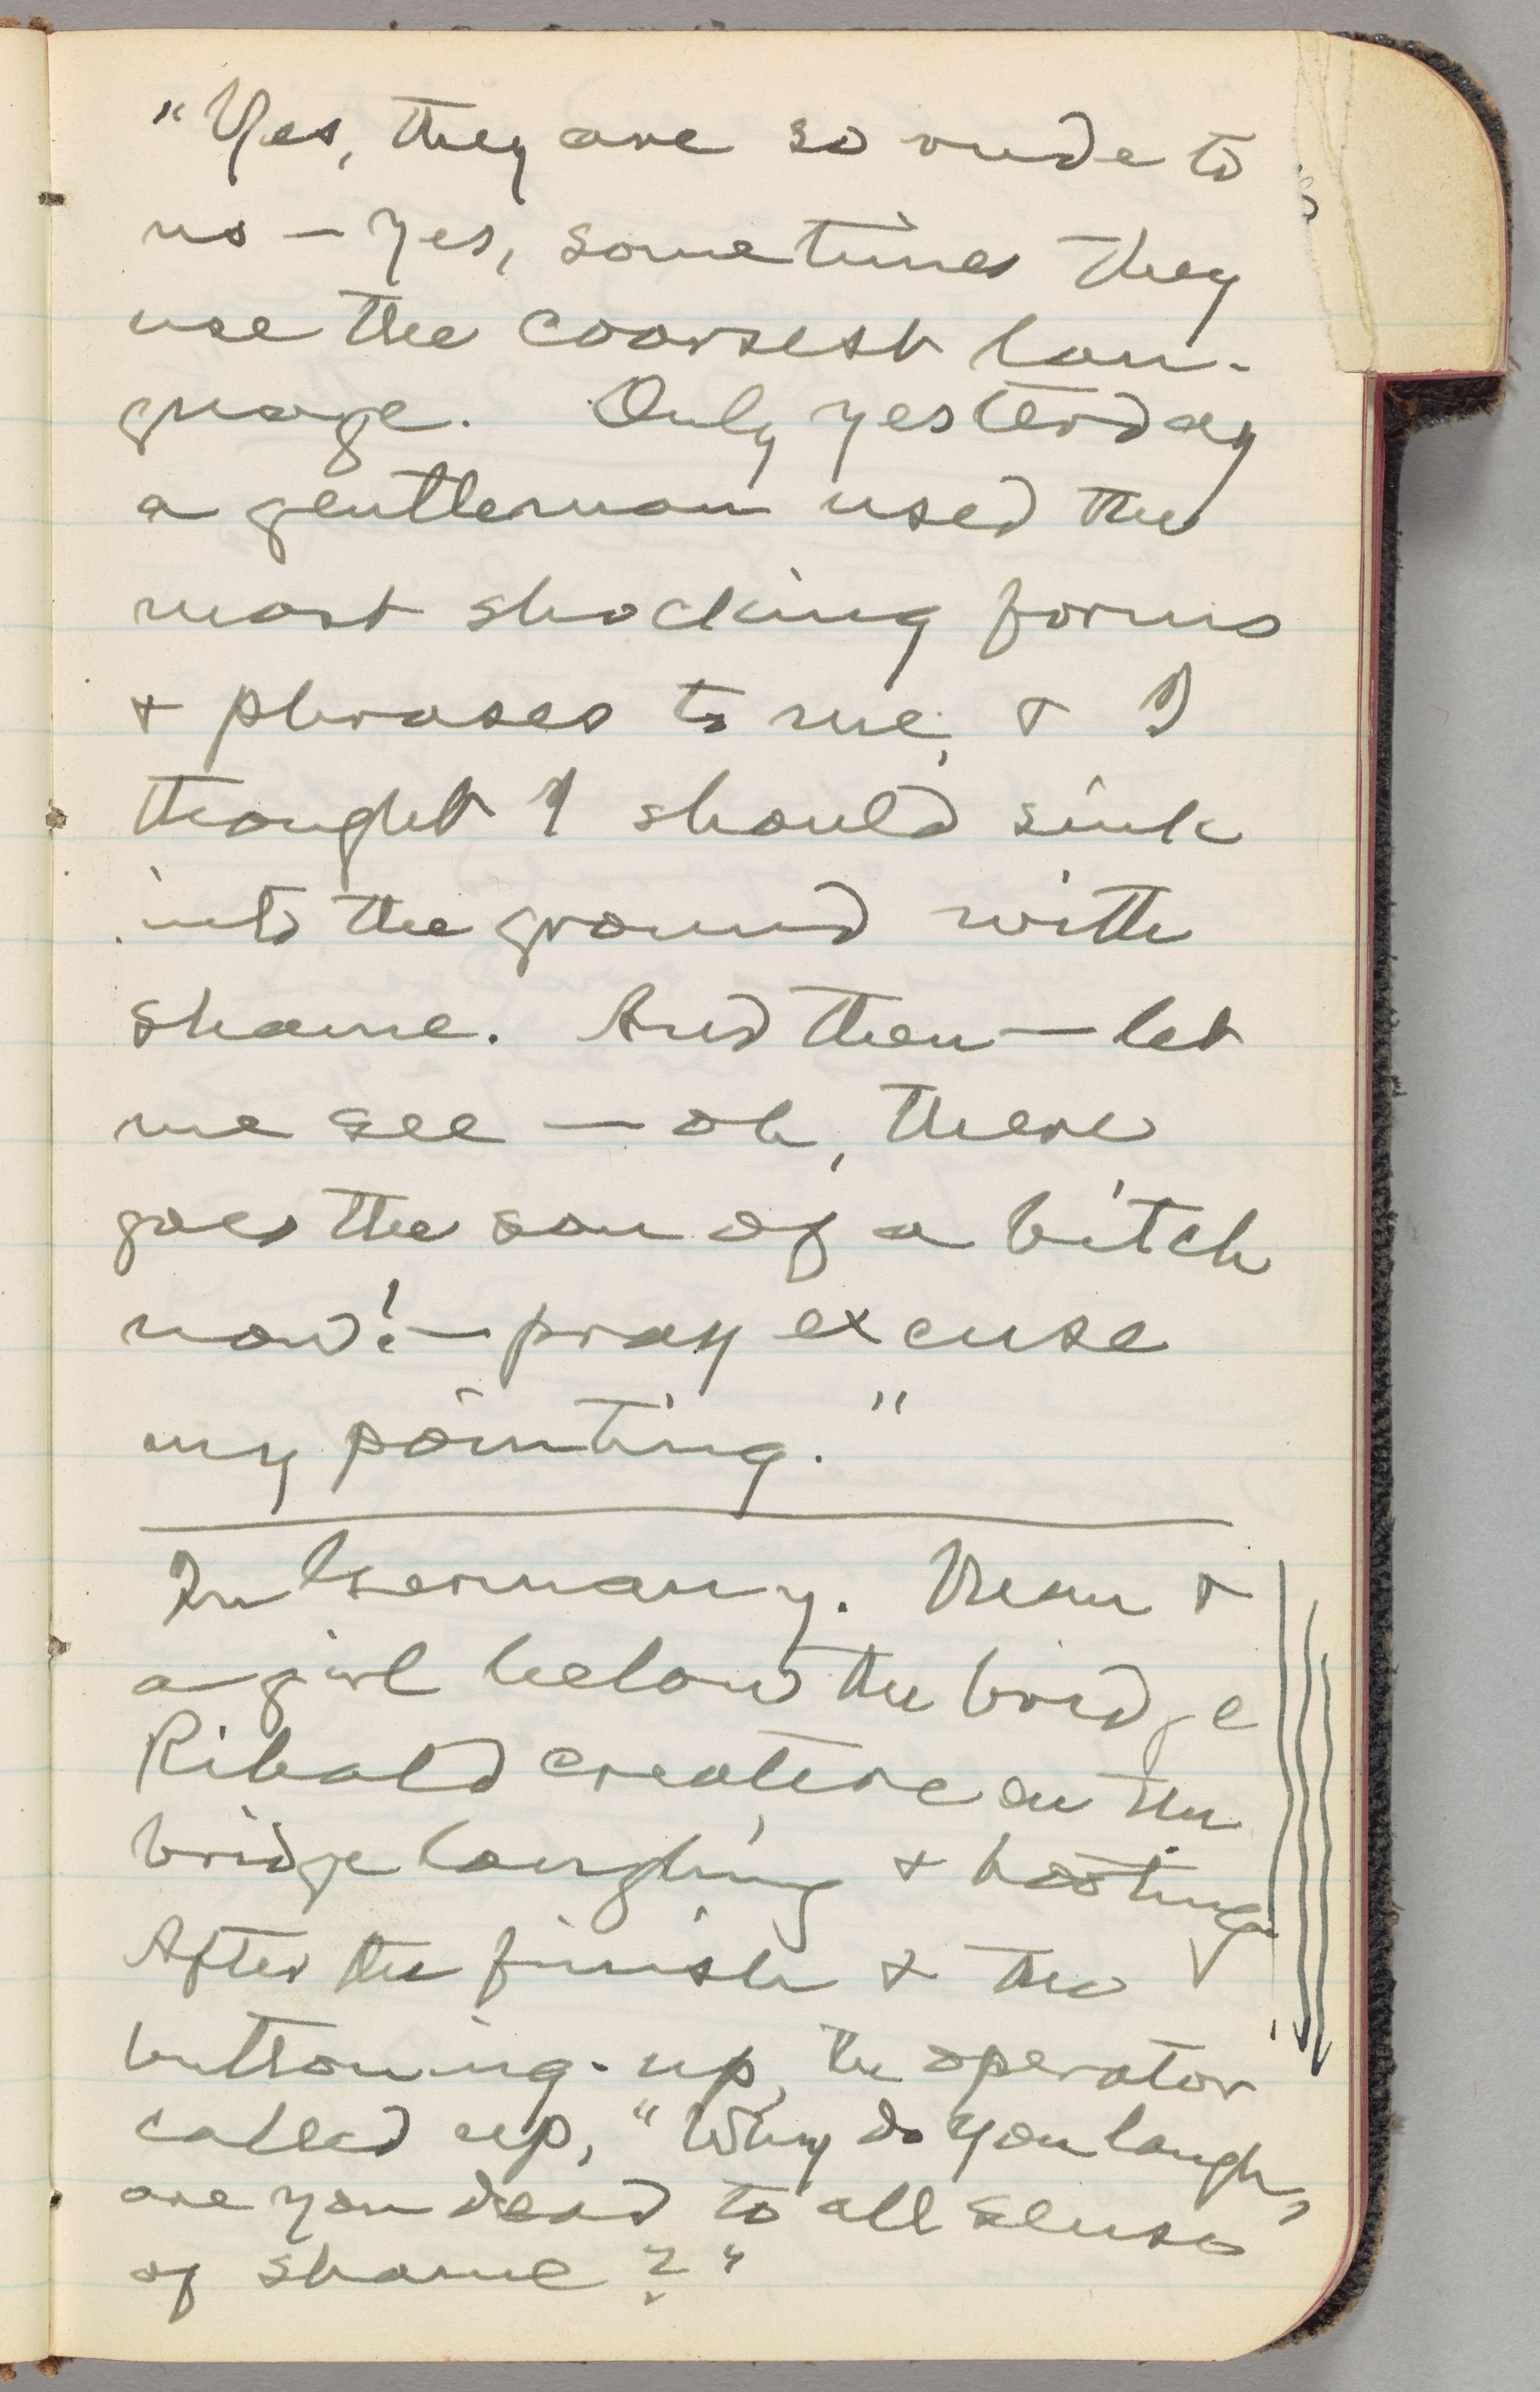 "Yes, they are so rude to
us — Yes, sometimes they
use the coarsest lan-
guage. Only yesterday
a gentleman used the
most shocking forms
& phrases to me, & I
thought I should sink
into the ground with
shame. And then — let
me see — oh, there
goes the son of a bitch
now! — pray excuse
my pointing."
In Germany. Man &
a girl below the bridge
Ribald creature on the
bridge laughing & hooting.
After the finish & the
buttoning-up, the operator
called up, "Why do you laugh,
are you dead to all sense
of shame?"